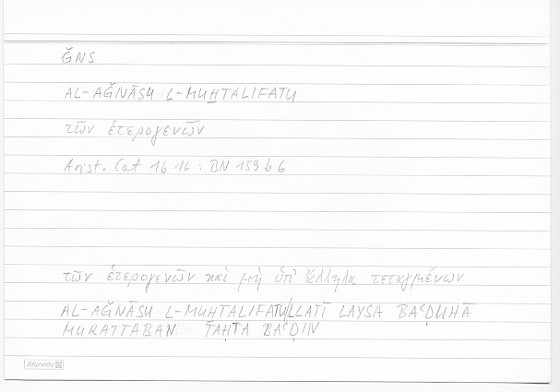 ǦNS
AL-AǦNĀSU L-MUḪTALIFATU
τῶν ἑτερογενῶν
Arist. Cat 1b16 : BN 159b6
τῶν ἑτερογενῶν καὶ μὴ ὑπ' ἄλληλα τεταγμένων
AL-AǦNĀSU L-MUḪTALIFATU/LLATĪ LAYSA BAʿḌUHĀ
MURATTABAN TAḤTA BAʿḌIN